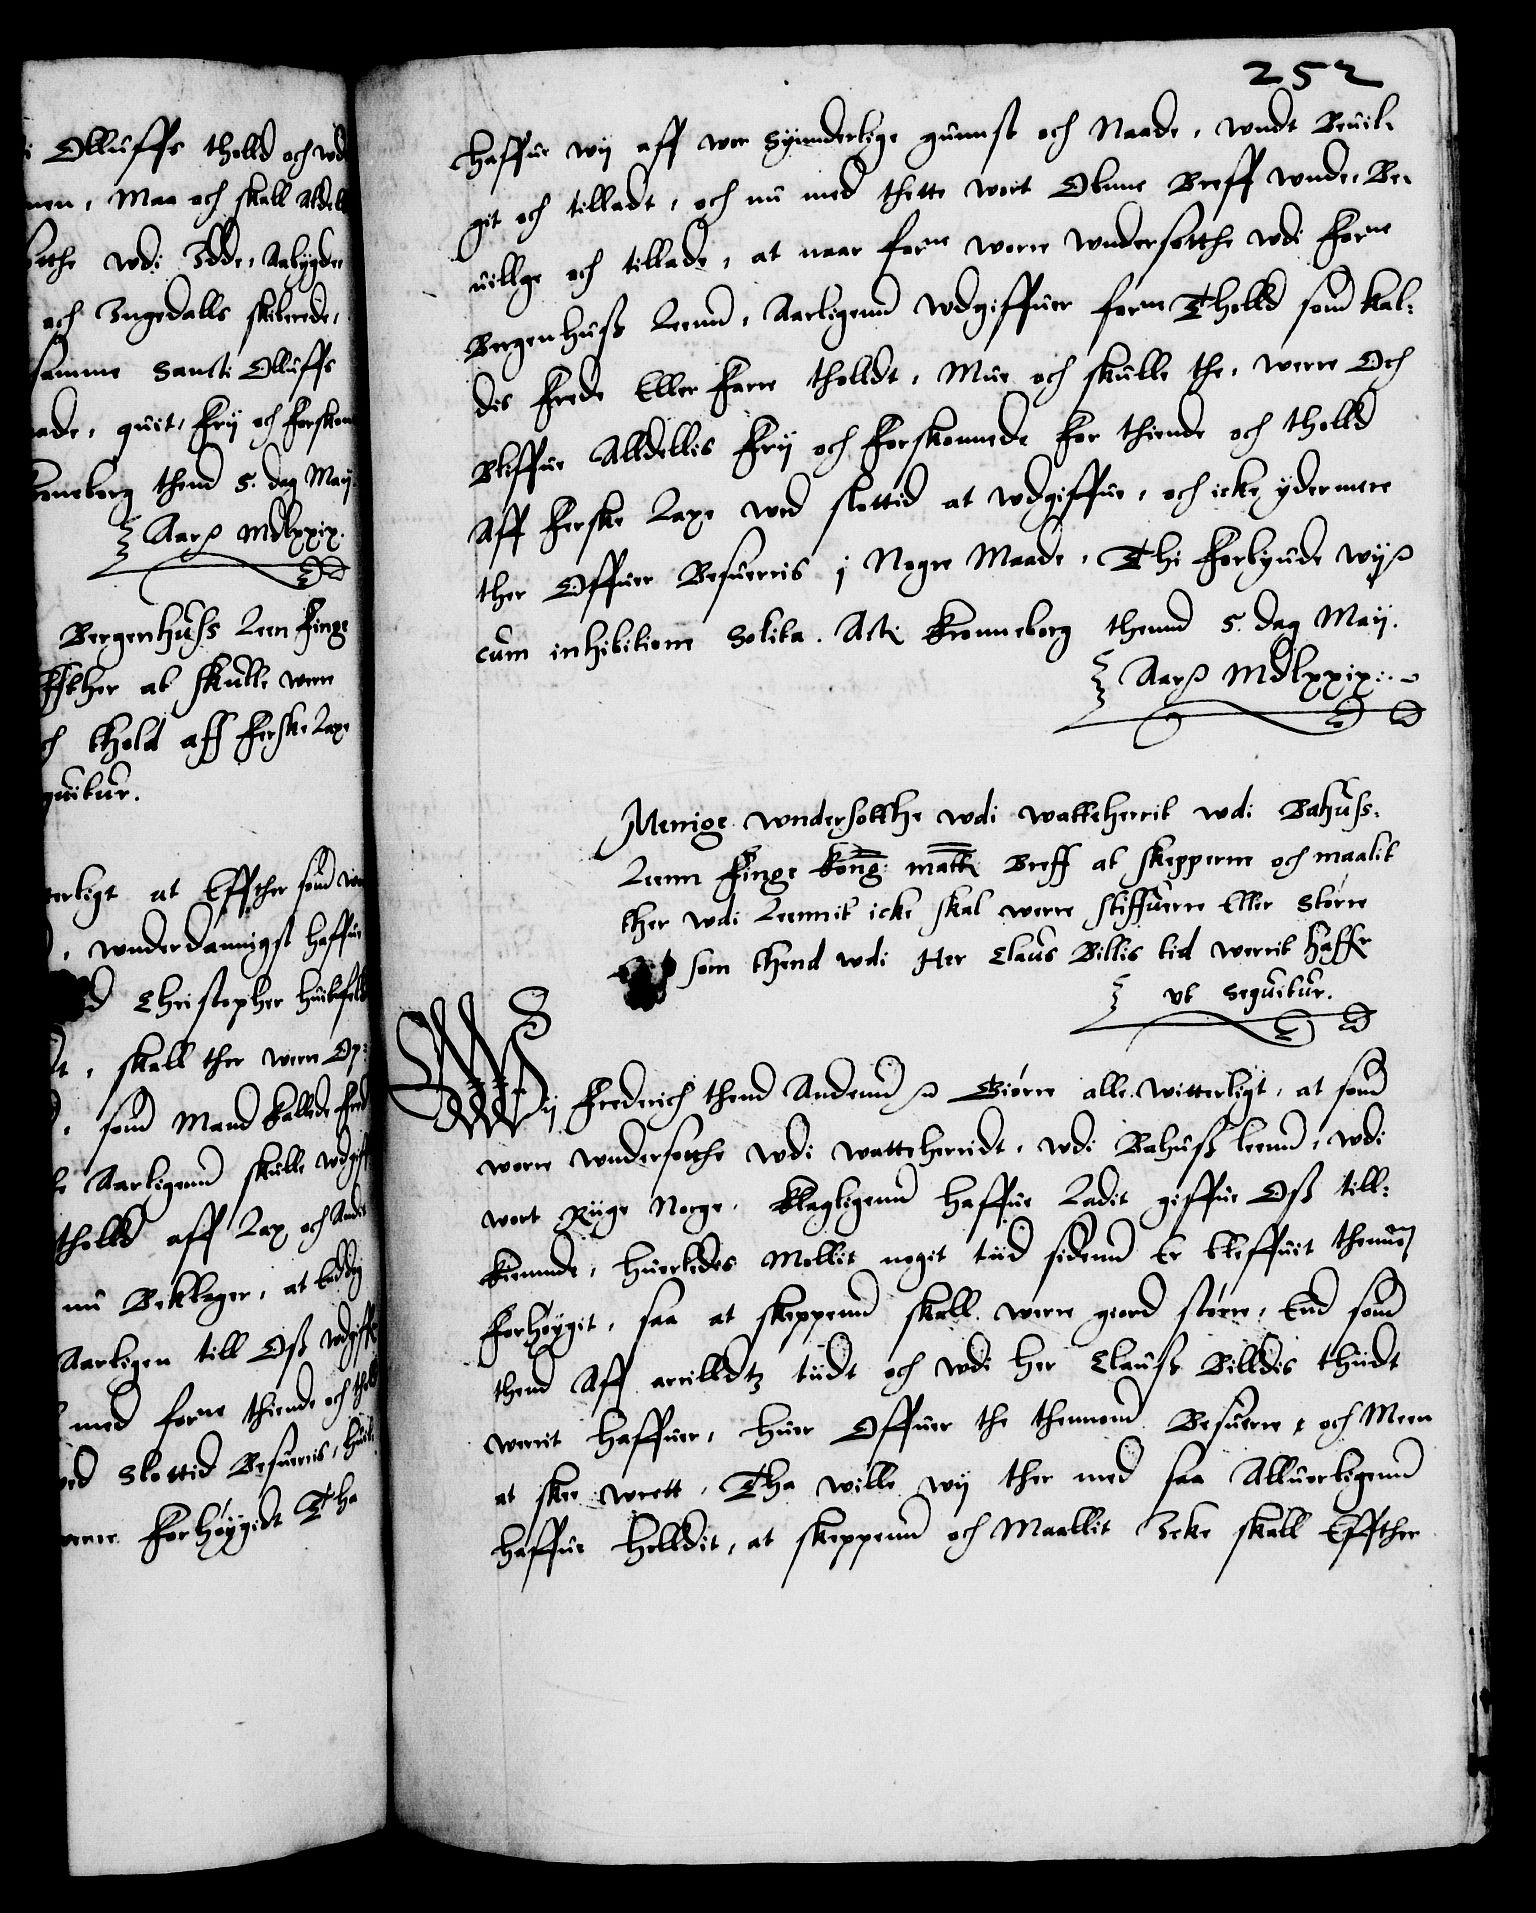 i Olluffs tholld och wd
nen, Maa och skall Aldel
sotthe wdi Idde, Aabygder
och Ingedalls skibrede,
samme Sancti Olluffs
aade, quit, frij och forskon
Kroneborg thend 5. dag Maij
Aarß Mdlxxix.
Bergenhuss Leen finge
Effther at skulle were
och thold aff ferske Laxe
sequitur.
terligt at Effther som wor
, wnderdannigst haffue
d Christopher huitfeld
dt, skall ther were Op:
d, som Mand kallede fred
le Aarligenn skulle wdgiff
tholld aff Lax och Andit
nu Beklager, at Endog
Aarligen till Oß wdgiffue
med forne thiende och tholl
ved Slottid Besueris, huil
were forhøygidt Tha
252
haffue wij aff wor Synnderlige gunnst och Naade, wndt Beuil,
git och tilladt, och nu med thette wort Obnne Breff wnde, Be,
uillge och tillade, at naar forne worre wndersotthe wdi forne
Bergenhuß Leenn, Aarligenn wdgiffuer forne Tholld som kal,
dis frede Eller farre tholldt, Mue och skulle the, werre Och
Bliffue Alldellis frij och forskonnede for thiende och tholld
Aff ferske Laxe wed slottid at wdgiffue, och icke ydermere
ther Offuer Besuerris j Nogre Maade, Thi forbyude wij p
cum inhibitione Solita. Acti Kronneborg thennd 5. dag Maij.
Aarß Mdlxxix:.
Menige wndersotthe wdi watteherrit wdi Bahuss.
Leenn finge Kong: Matt: Breff at skepperne och maalit
ther wdi Leennit icke skal werre stiffuerre Eller Større
som thend wdi Her Claus Billis tid werrit haffr
vt Sequitur.
Wij Frederich thend Andenn p Giørre alle witterligt, at som
worre wndersotthe wdi watteherridt, wdi Bahuß leenn, wdi
wort Rige Norge, klagligenn haffue Ladit giffue Oß till:
kiennde, huorledes Mollit nogit tiid sidenn Er bleffuit thennom
forhøygit, saa at skeppenn skall werre giord større, End som
thend Aff arrilldtz tiidt och wdi her Clauß Billdis thiidt
werrit haffuer, huor Offuer the thennom Besuerre, och Meen
at skee wrett, Tha wille wij ther med saa Alluorligenn
haffue holldit, at skeppenn och Maallit Icke skall Effther